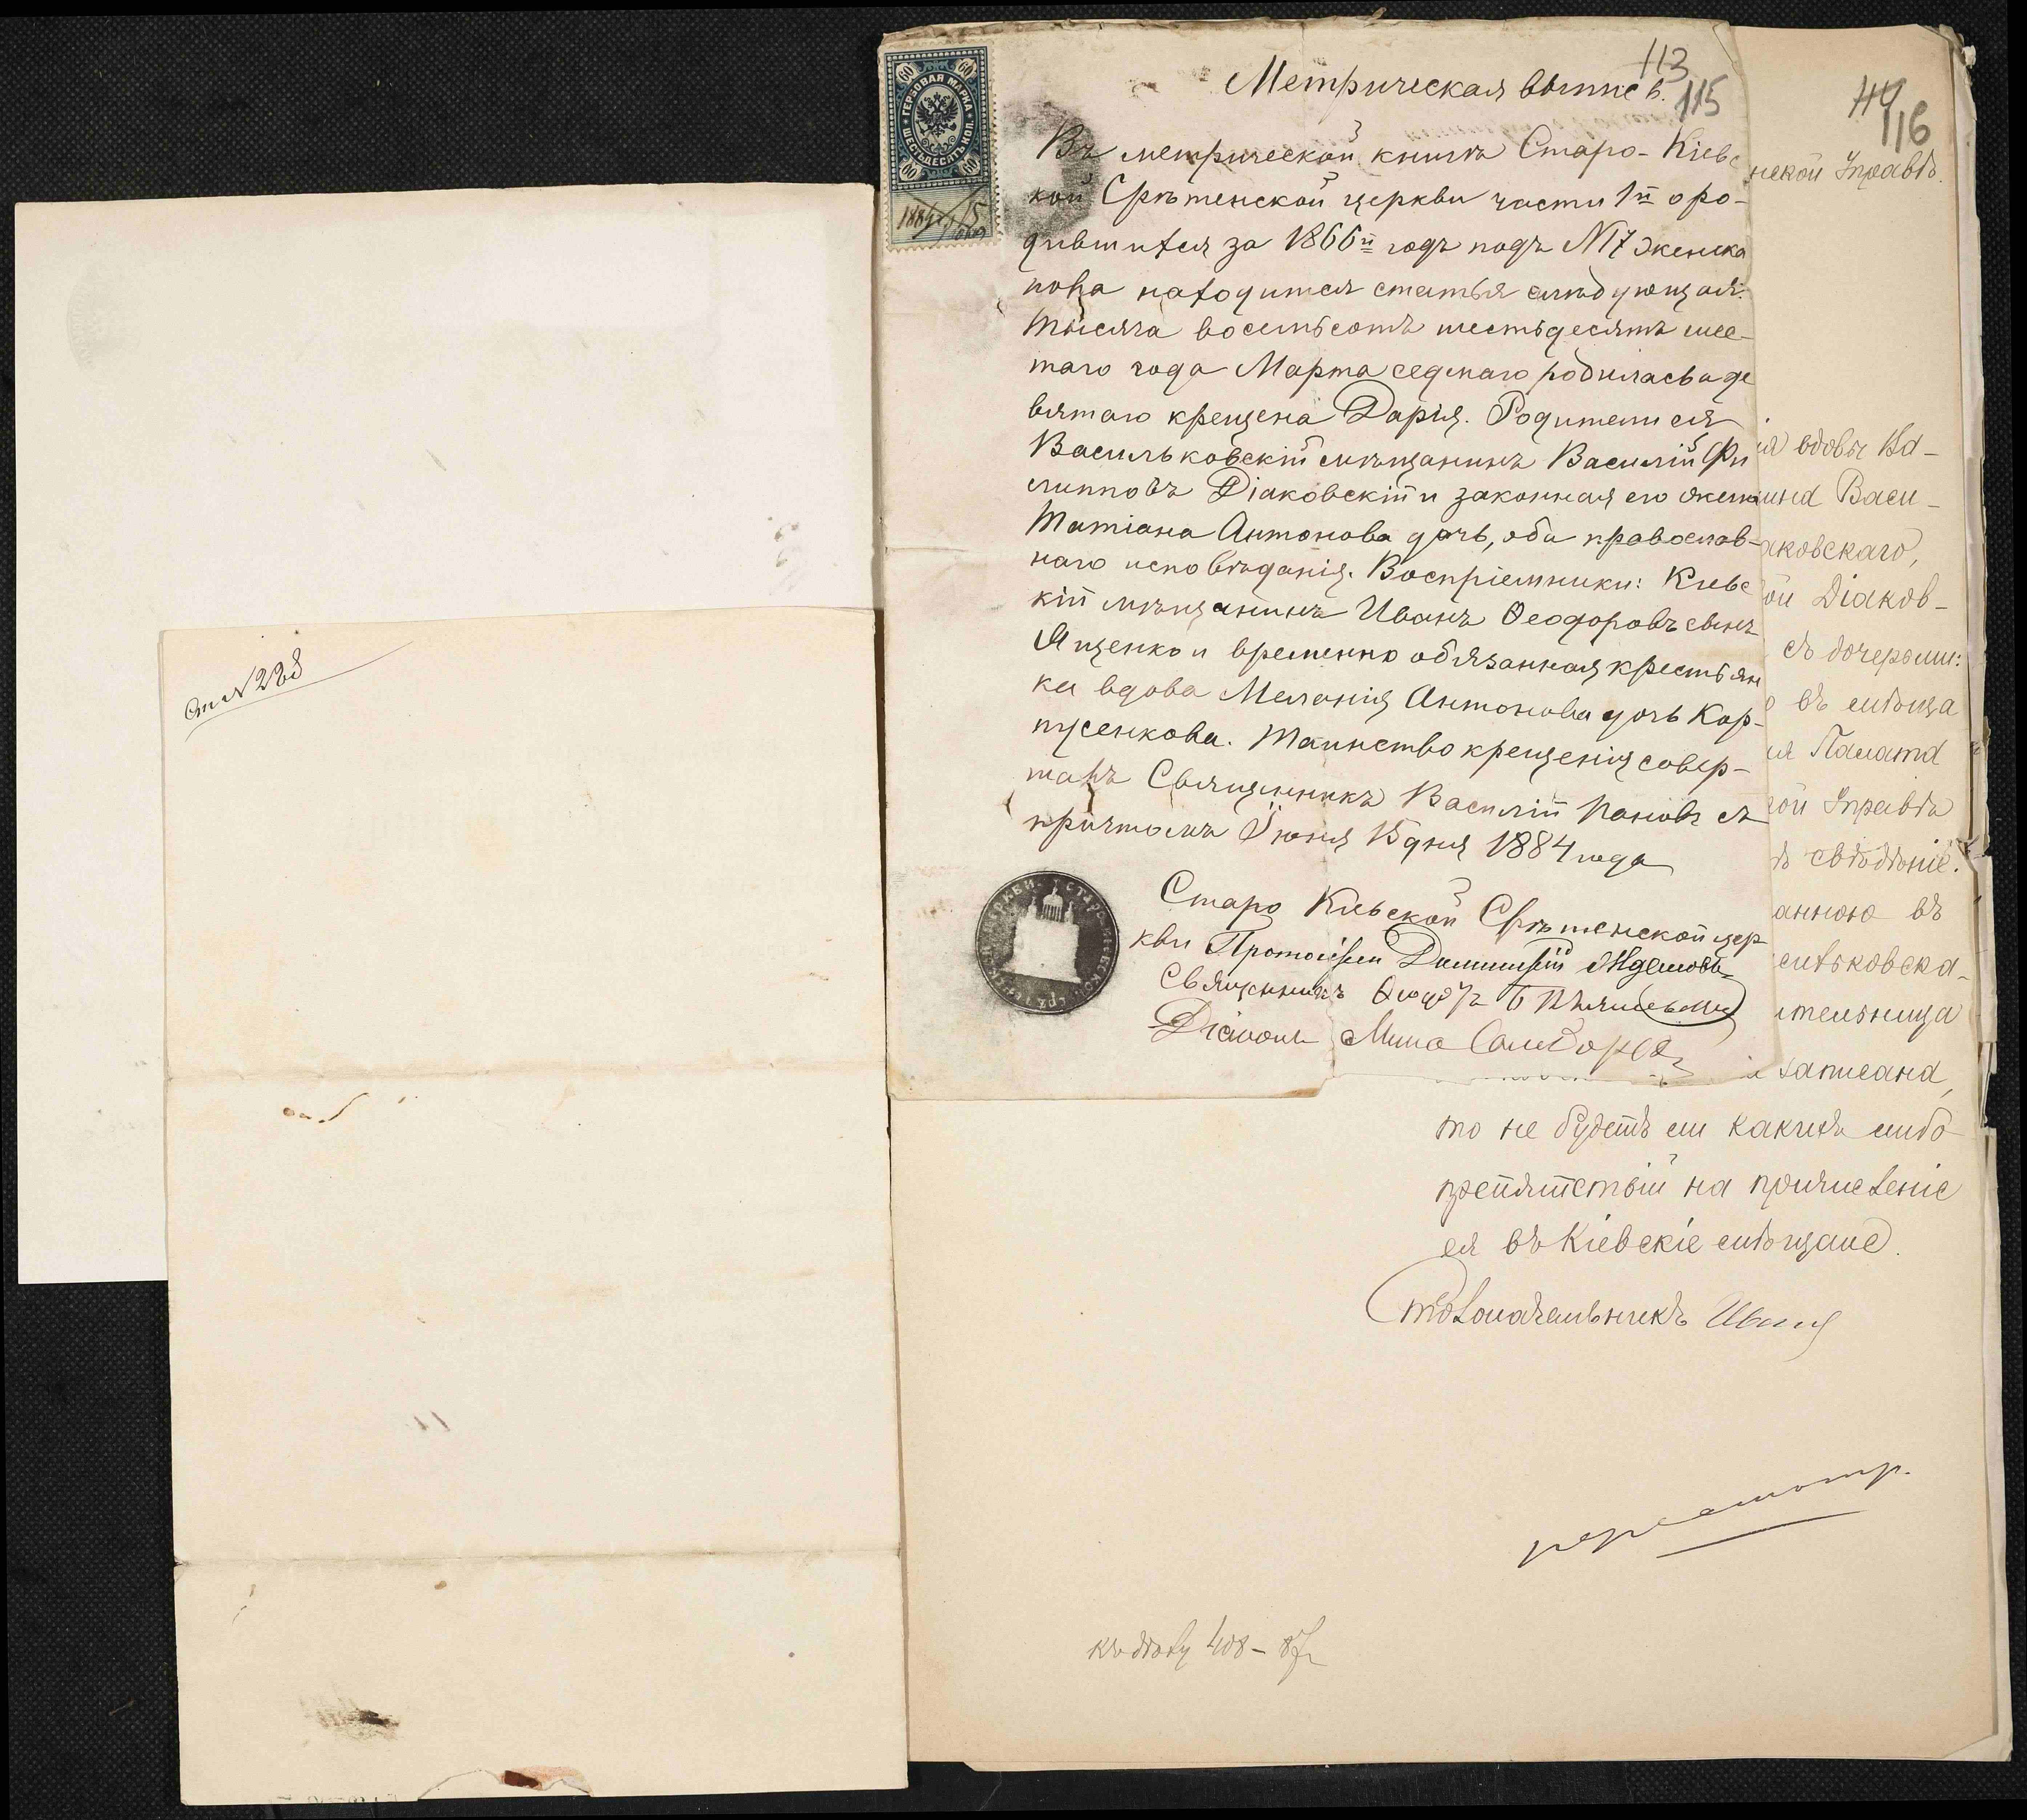 Ст N 228
60
60
ГЕРБОВАЯ МАРКА
ШЕСТЬДЕСЯТЪ КОП.
60
60
1884
15
113
115
Метрическая выпись.
Въ метрической книгѣ Старо-Кіевс
кой Срѣтенской церкви части 1й о ро-
дившихся за 1866й годъ подъ N17 женска
пола находится статья слѣдующая:
Тысяча восемьсотъ шестьдесятъ шес-
таго года Марта седмаго родилась а де
вятаго крещена Дарія. Родители ея
Васильковскій мѣщанинъ Василій Фи
липповъ Діаковскій и законная его жена
Татіана Антонова дочь, оба православ-
наго исповѣданія. Воспріемники: Кіевс
кій мѣщанинъ Иванъ Ѳеодоровъ сынъ
Ященко и временно обязанная крестьян
ка вдова Меланія Антонова дочь Кор-
пусенкова. Таинство крещенія совер-
шалъ Священникъ Василій Пановъ съ
причтомъ Іюня 15 дня 1884 года
Старо Кіевской Срѣтенской цер
кви Протоіерей Димитрій Ждановъ
Священникъ
Діаконъ
114
116
нской Управѣ.
вдовы Ва-
Васи-
аковскаго,
ой Діаков-
съ дочерьми:
въ мѣща
Палата
кой Управѣ
свѣдѣніе.
анною въ
сильковска-
ительница
записана,
то не будетъ ли какихъ либо
препятствій на причисленіе
ея въ Кіевскіе мѣщане.
Столоначальникъ
пересмотр.
къ дѣлу 408-87г